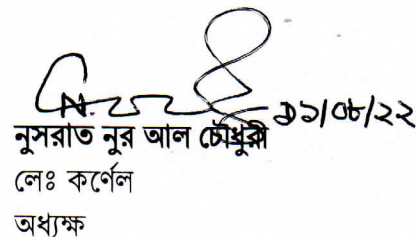 ৩১/০৮/২২
নুসরাত নুর আল চৌধুরী
লেঃ কর্ণেল
অধ্যক্ষ